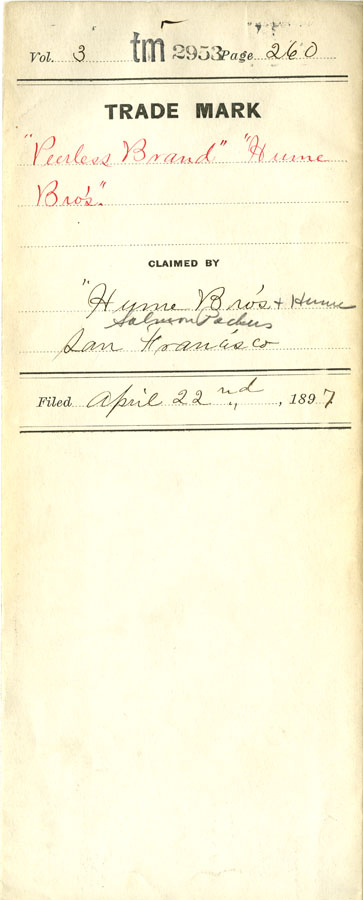 Vol. 3 tm 2953 Page 260
TRADE MARK
"Peerless Brand" "Hume
Bro's."
CLAIMED BY
"Hume Bro's + Hume
Salmon Packers
San Francisco
Filed April 22nd, 1897